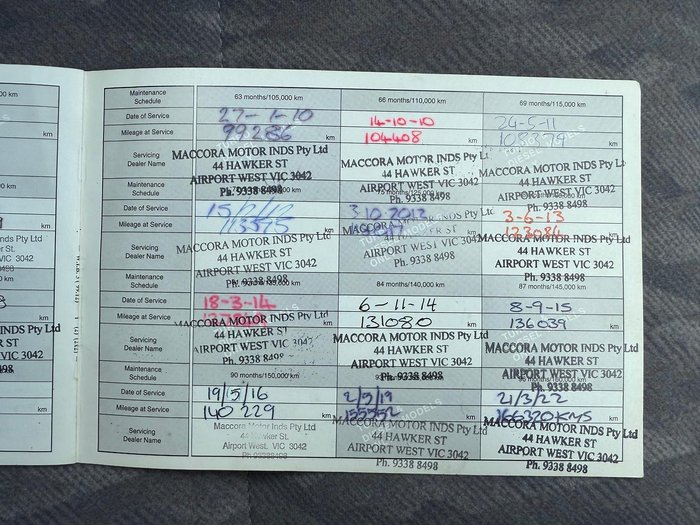 Maintenance Schedule
63 months/105,000 km
66 months/110,000 km
69 months/115,000 km
Date of Service
27-1-10
14-10-10
24-5-11
Mileage at Service
99286 km
104408 km
108379 km
Servicing Dealer Name
MACCORA MOTOR INDS Pty Ltd
44 HAWKER ST
AIRPORT WEST VIC 3042
Ph. 9338 8498
MACCORA MOTOR INDS Pty Ltd
44 HAWKER ST
AIRPORT WEST VIC 3042
Ph. 9338 8498
MACCORA MOTOR INDS Pty Ltd
44 HAWKER ST
AIRPORT WEST VIC 3042
Ph. 9338 8498
Maintenance Schedule
Date of Service
3.10.2012
3-6-13
Mileage at Service
113575 km
km
123084 km
Servicing Dealer Name
MACCORA MOTOR INDS Pty Ltd
44 HAWKER ST
AIRPORT WEST VIC 3042
Ph. 9338 8498
INDS Pty Ltd
HAWKER ST
AIRPORT WEST VIC 3042
Ph. 9338 8498
MACCORA MOTOR INDS Pty Ltd
44 HAWKER ST
AIRPORT WEST VIC 3042
Ph. 9338 8498
Maintenance Schedule
84 months/140,000 km
87 months/145,000 km
Date of Service
18-3-14
6-11-14
8-9-15
Mileage at Service
km
131080 km
136039 km
Servicing Dealer Name
MACCORA MOTOR INDS Pty Ltd
44 HAWKER ST
AIRPORT WEST VIC 3042
Ph. 9338 8498
MACCORA MOTOR INDS Pty Ltd
44 HAWKER ST
AIRPORT WEST VIC 3042
Ph. 9338 8498
MACCORA MOTOR INDS Pty Ltd
44 HAWKER ST
AIRPORT WEST VIC 3042
Ph. 9338 8498
Maintenance Schedule
90 months/150,000 km
Date of Service
19/5/16
2/5/19
21/3/22
Mileage at Service
140 229 km
km
166320 KMS
Servicing Dealer Name
Maccora Motor Inds. Pty Ltd
44 Hawker St.
Airport West, VIC 3042
Ph. 93388498
MACCORA MOTOR INDS Pty Ltd
44 HAWKER ST
AIRPORT WEST VIC 3042
Ph. 9338 8498
MACCORA MOTOR INDS Pty Ltd
44 HAWKER ST
AIRPORT WEST VIC 3042
Ph. 9338 8498